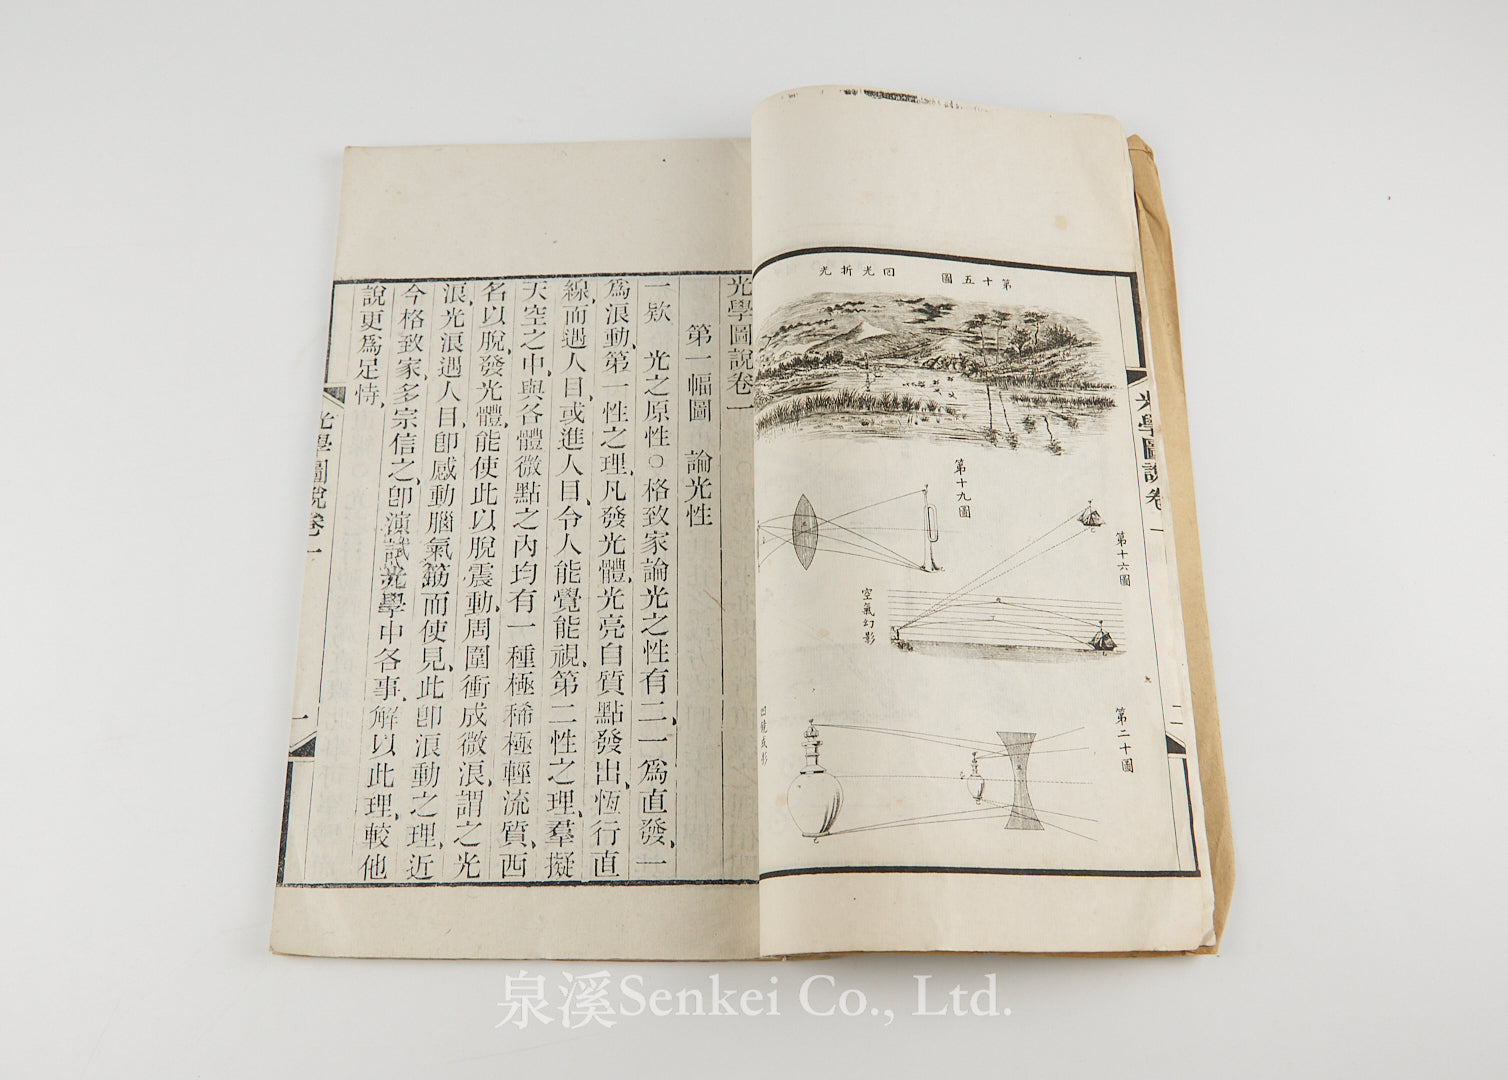 光學圖說卷一
二
第十五圖 回光折光
第十六圖
空氣幻影
第十九圖
第二十圖
凹鏡成影
光學圖說卷一
第一幅圖 論光性
一欵 光之原性○格致家論光之性有二、一爲直發、一
爲浪動、第一性之理、凡發光體、光亮自質點發出、恆行直
線、而遇人目、或進人目、令人能覺能視、第二性之理、羣擬
天空之中、與各體微點之內、均有一種極稀極輕流質、西
名以脫、發光體、能使此以脫震動、周圍衝成微浪、謂之光
浪、光浪遇人目、卽感動腦氣筋而使見、此卽浪動之理、近
今格致家、多宗信之、卽演試光學中各事、解以此理、較他
說更爲足恃、
光學圖說卷一
一
泉溪Senkei Co., Ltd.